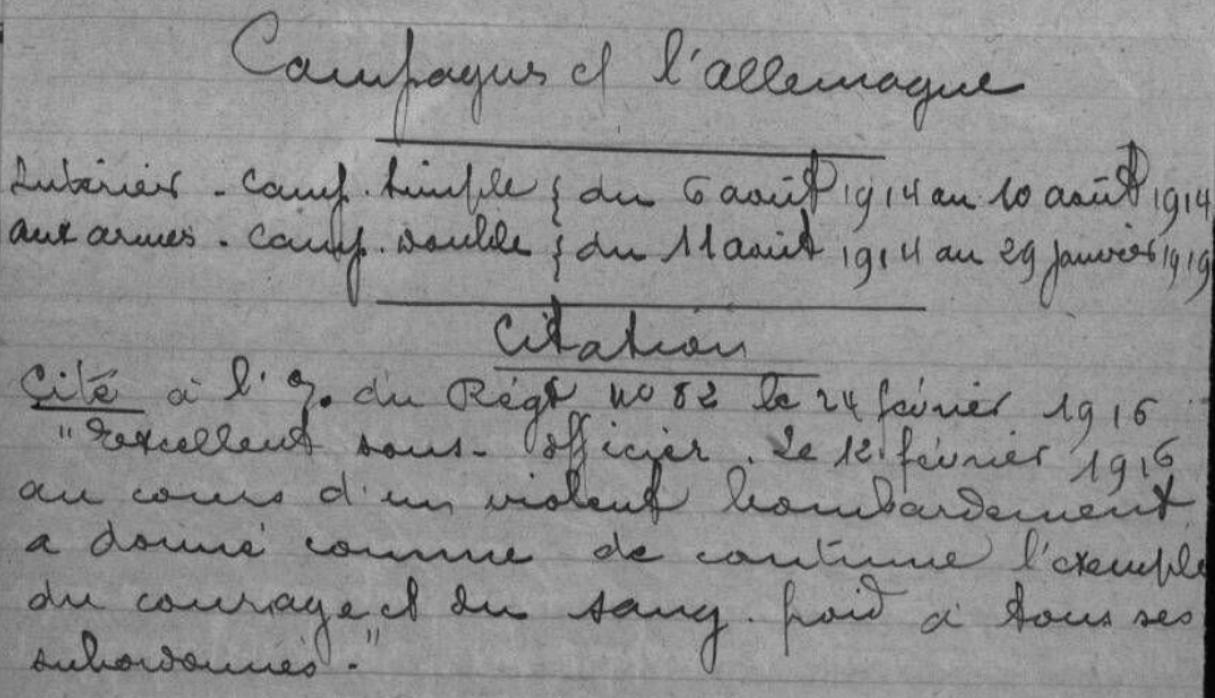 Campagnes ct l'allemagne
Intérieur - camp. simple { du 6 août 1914 au 10 août 1914
aux armées - camp. double { du 11 août 1914 au 29 janvier 1919
Citation
Cité à l'O. du Régt no 82 le 24 février 1916
"Excellent sous-officier. Le 12 février 1916
au cours d'un violent bombardement
a donné comme de coutume l'exemple
du courage et du sang-froid à tous ses
subordonnés."